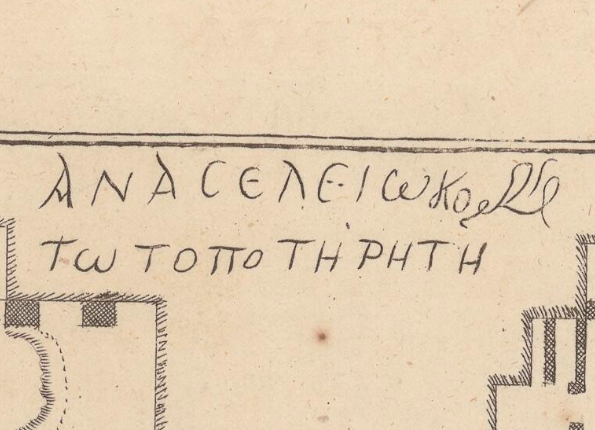 ΑΝΑCΕΛΕΙω
Τω ΤΟΠΟΤΗΡΗΤΗ